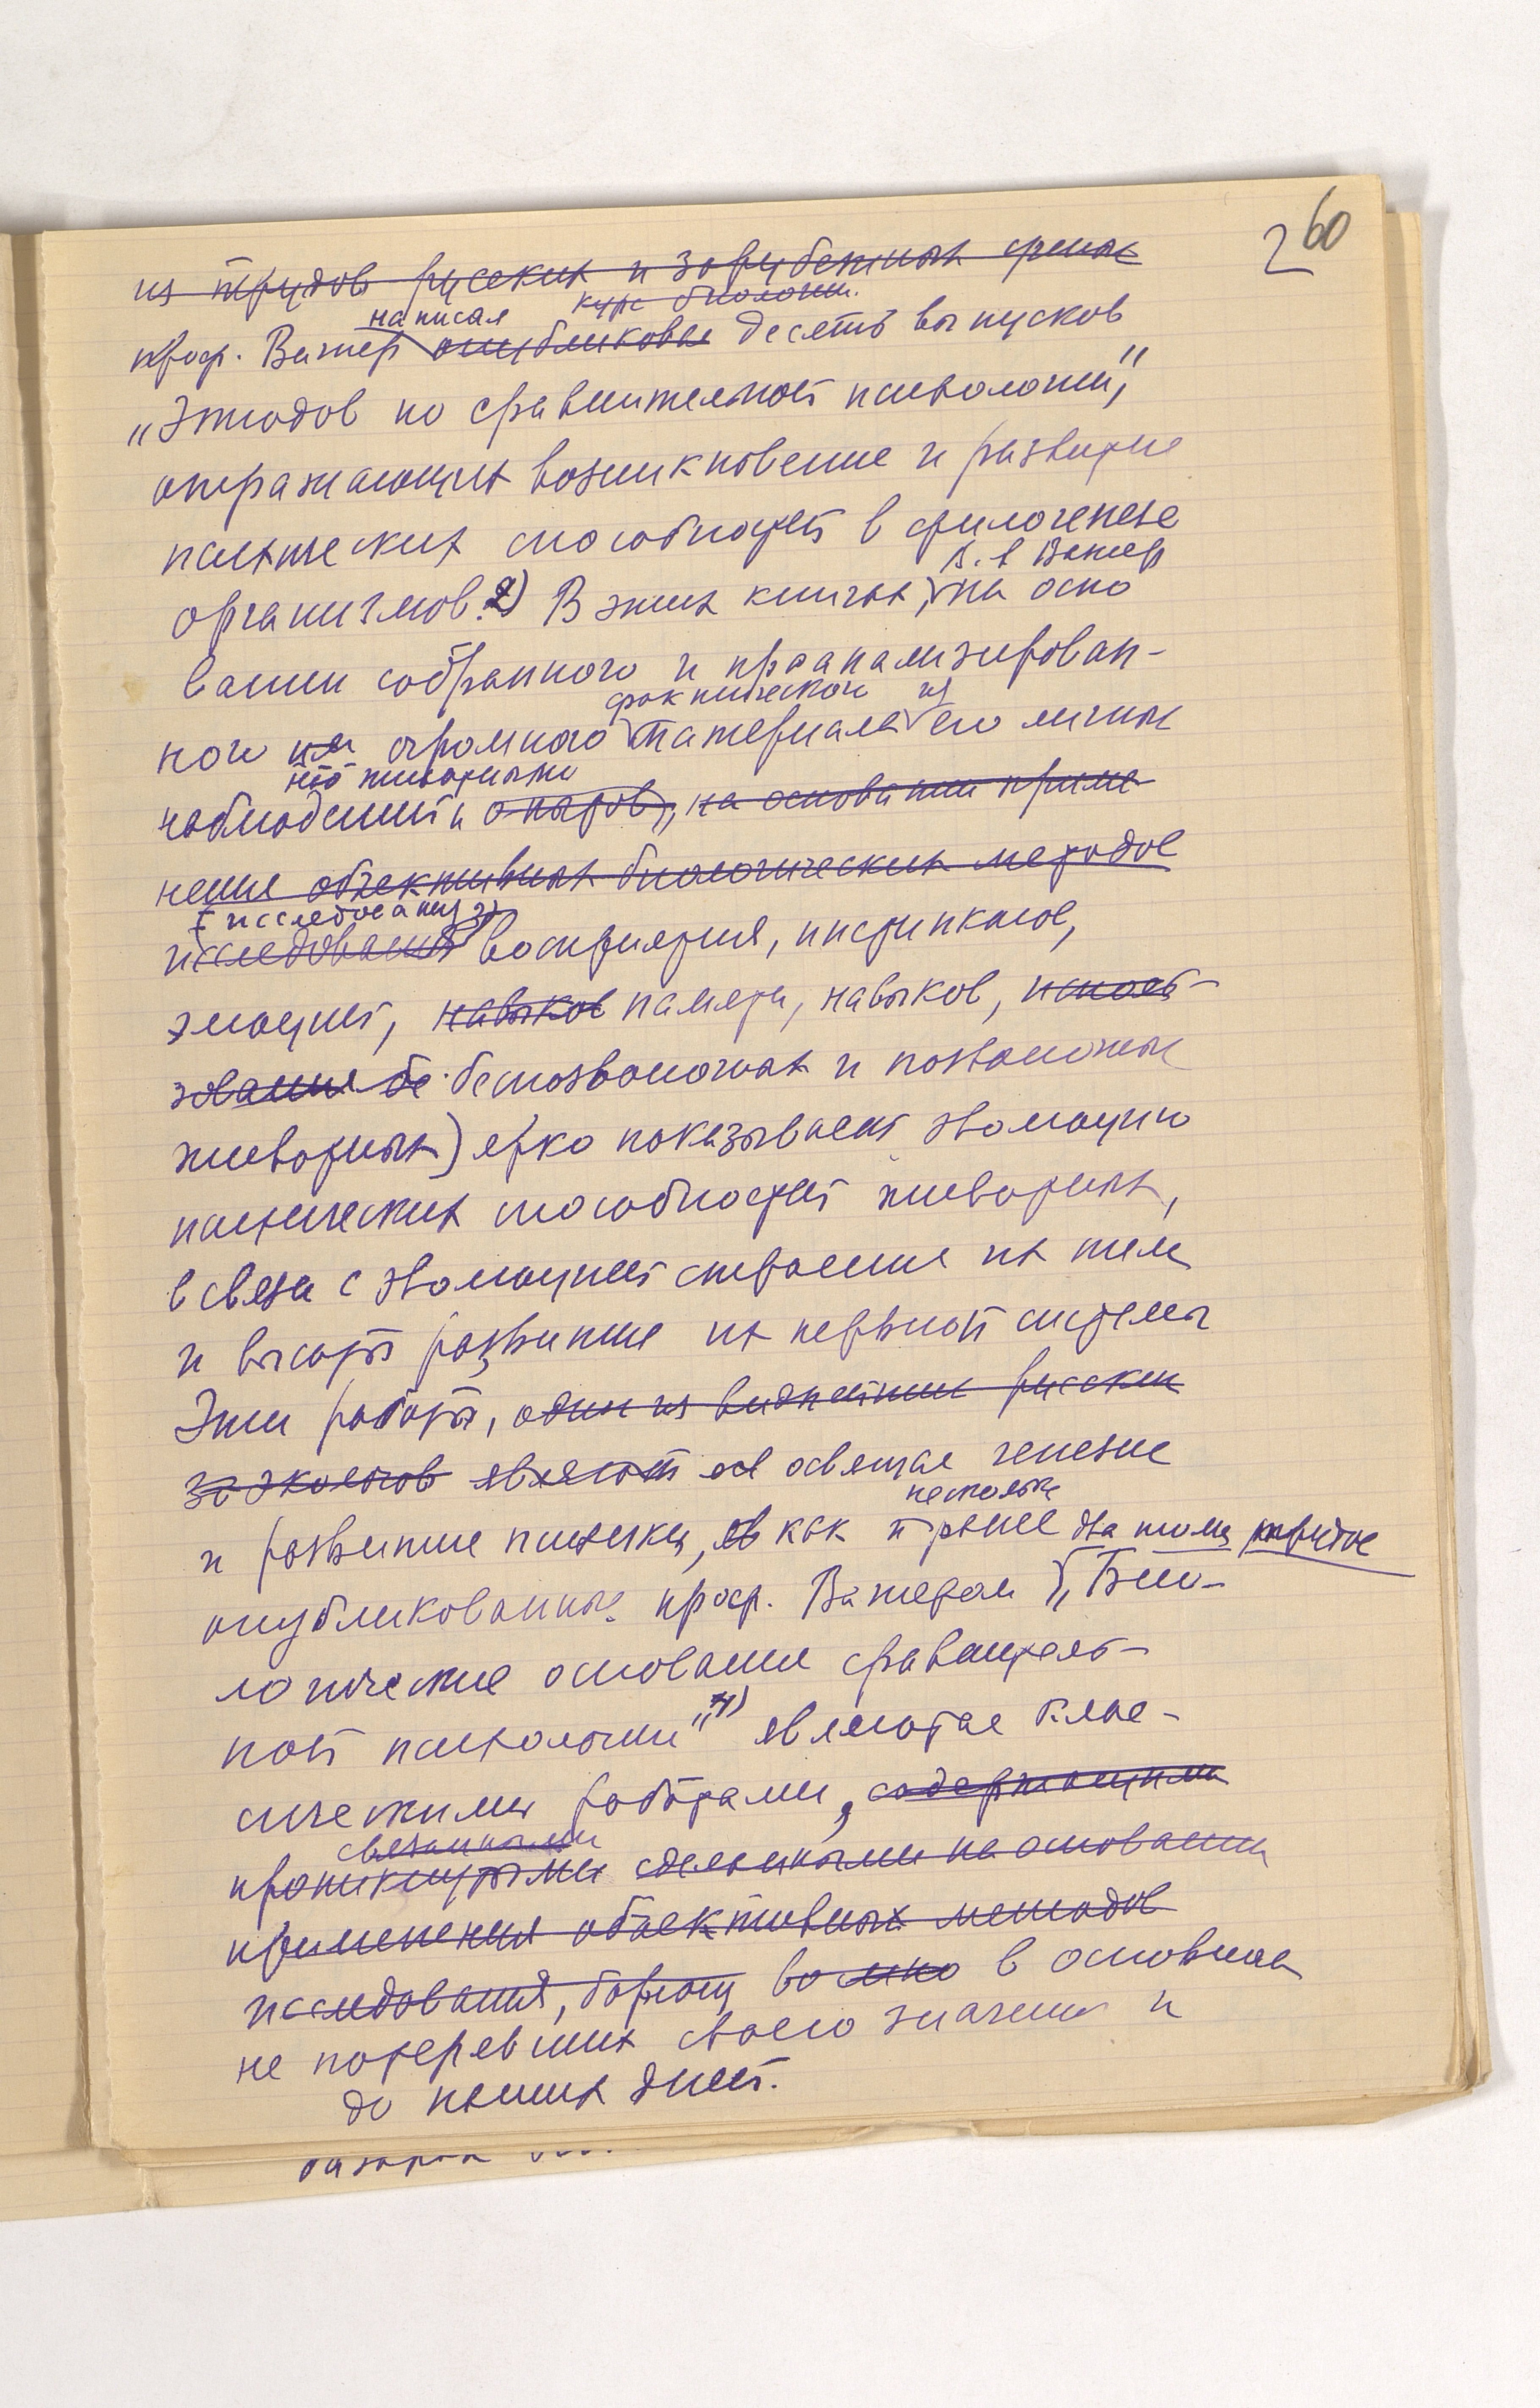 2 60
из трудов русских и зарубежных ученых
написал курс биологии.
проф. Вагнер опубликовал десять выпусков
„Этюдов по сравнительной психологии",
отражающих возникновение и развитие
психических способностей в филогенезе
В. А Вагнер
организмов. 2) В этих книгах, на осно
вании собранного и проанализирован-
фактического из
ного им огромного материала его личных
над животными
наблюдений и опытов, на основании приме-
нения объективных биологических методов
(исследования
исследования восприятия, инстинктов,
эмоций, навыков памяти, навыков,
бе беспозвоночных и позвоночных
животных) ярко показывает эволюцию
психических способностей животных,
в связи с эволюцией строения их тела
и высоты развития их нервной системы
Эти работы, один из виднейших русских
зо экологов являются ос освящая генезис
несколько
и развитие психики, как и ранее два тома трудов
опубликованные проф. Вагнером „Био-
логические основания сравнитель-
ной психологии" являются клас-
сическими работами, содержащими
связанными
проникнутыми сделанными на основании
применения объективных методов
исследования, в основном
не потерявших своего значения и
до наших дней.